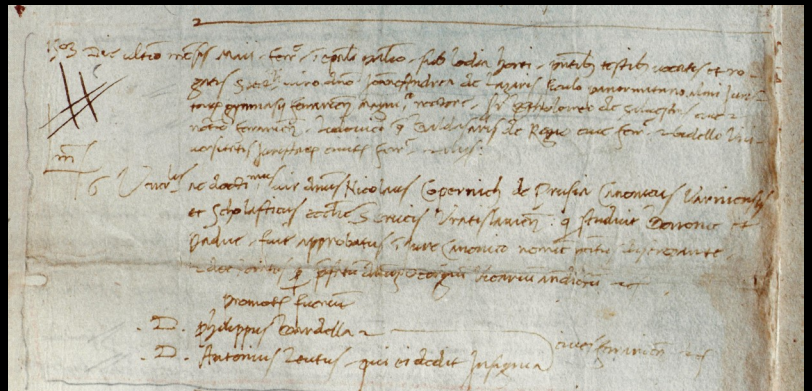 1503 Die ultimo mēsis Maii Ferr. ī epāli palō, sub lodia horti, pntibus testibus vocatis et ro-
gatis Sp. viro dno Joanne Andrea de Lazaris siculo panormitano almi Juri-
starum gymnasii Ferrariēn magnifico rectore, Sr Bartholomeo de Silvestris, cive et
notō Ferrariēn, Ludovico q Baldasaris de Regio cive ferr. et bidello Uni-
versitatis Juristarum civitis Ferr. et aliis:
Venerlis ac doctimus vir dnus Nicolaus Copernich de Prusia Canonicus Varmiensis
et Scholasticus ecclie S. crucis Vratislaviēn: q studuit Bononie et
Padue, fuit approbatus ī iure Canonico nemine pentus discrepante
et doctoratus p pfatum dnum Georgium Vicarium antedictum etc
promotes fuerunt
D. Philippus Bardella et
D. Antonius Leutus, qui ei dedit Insignia
cives ferrariēn etc